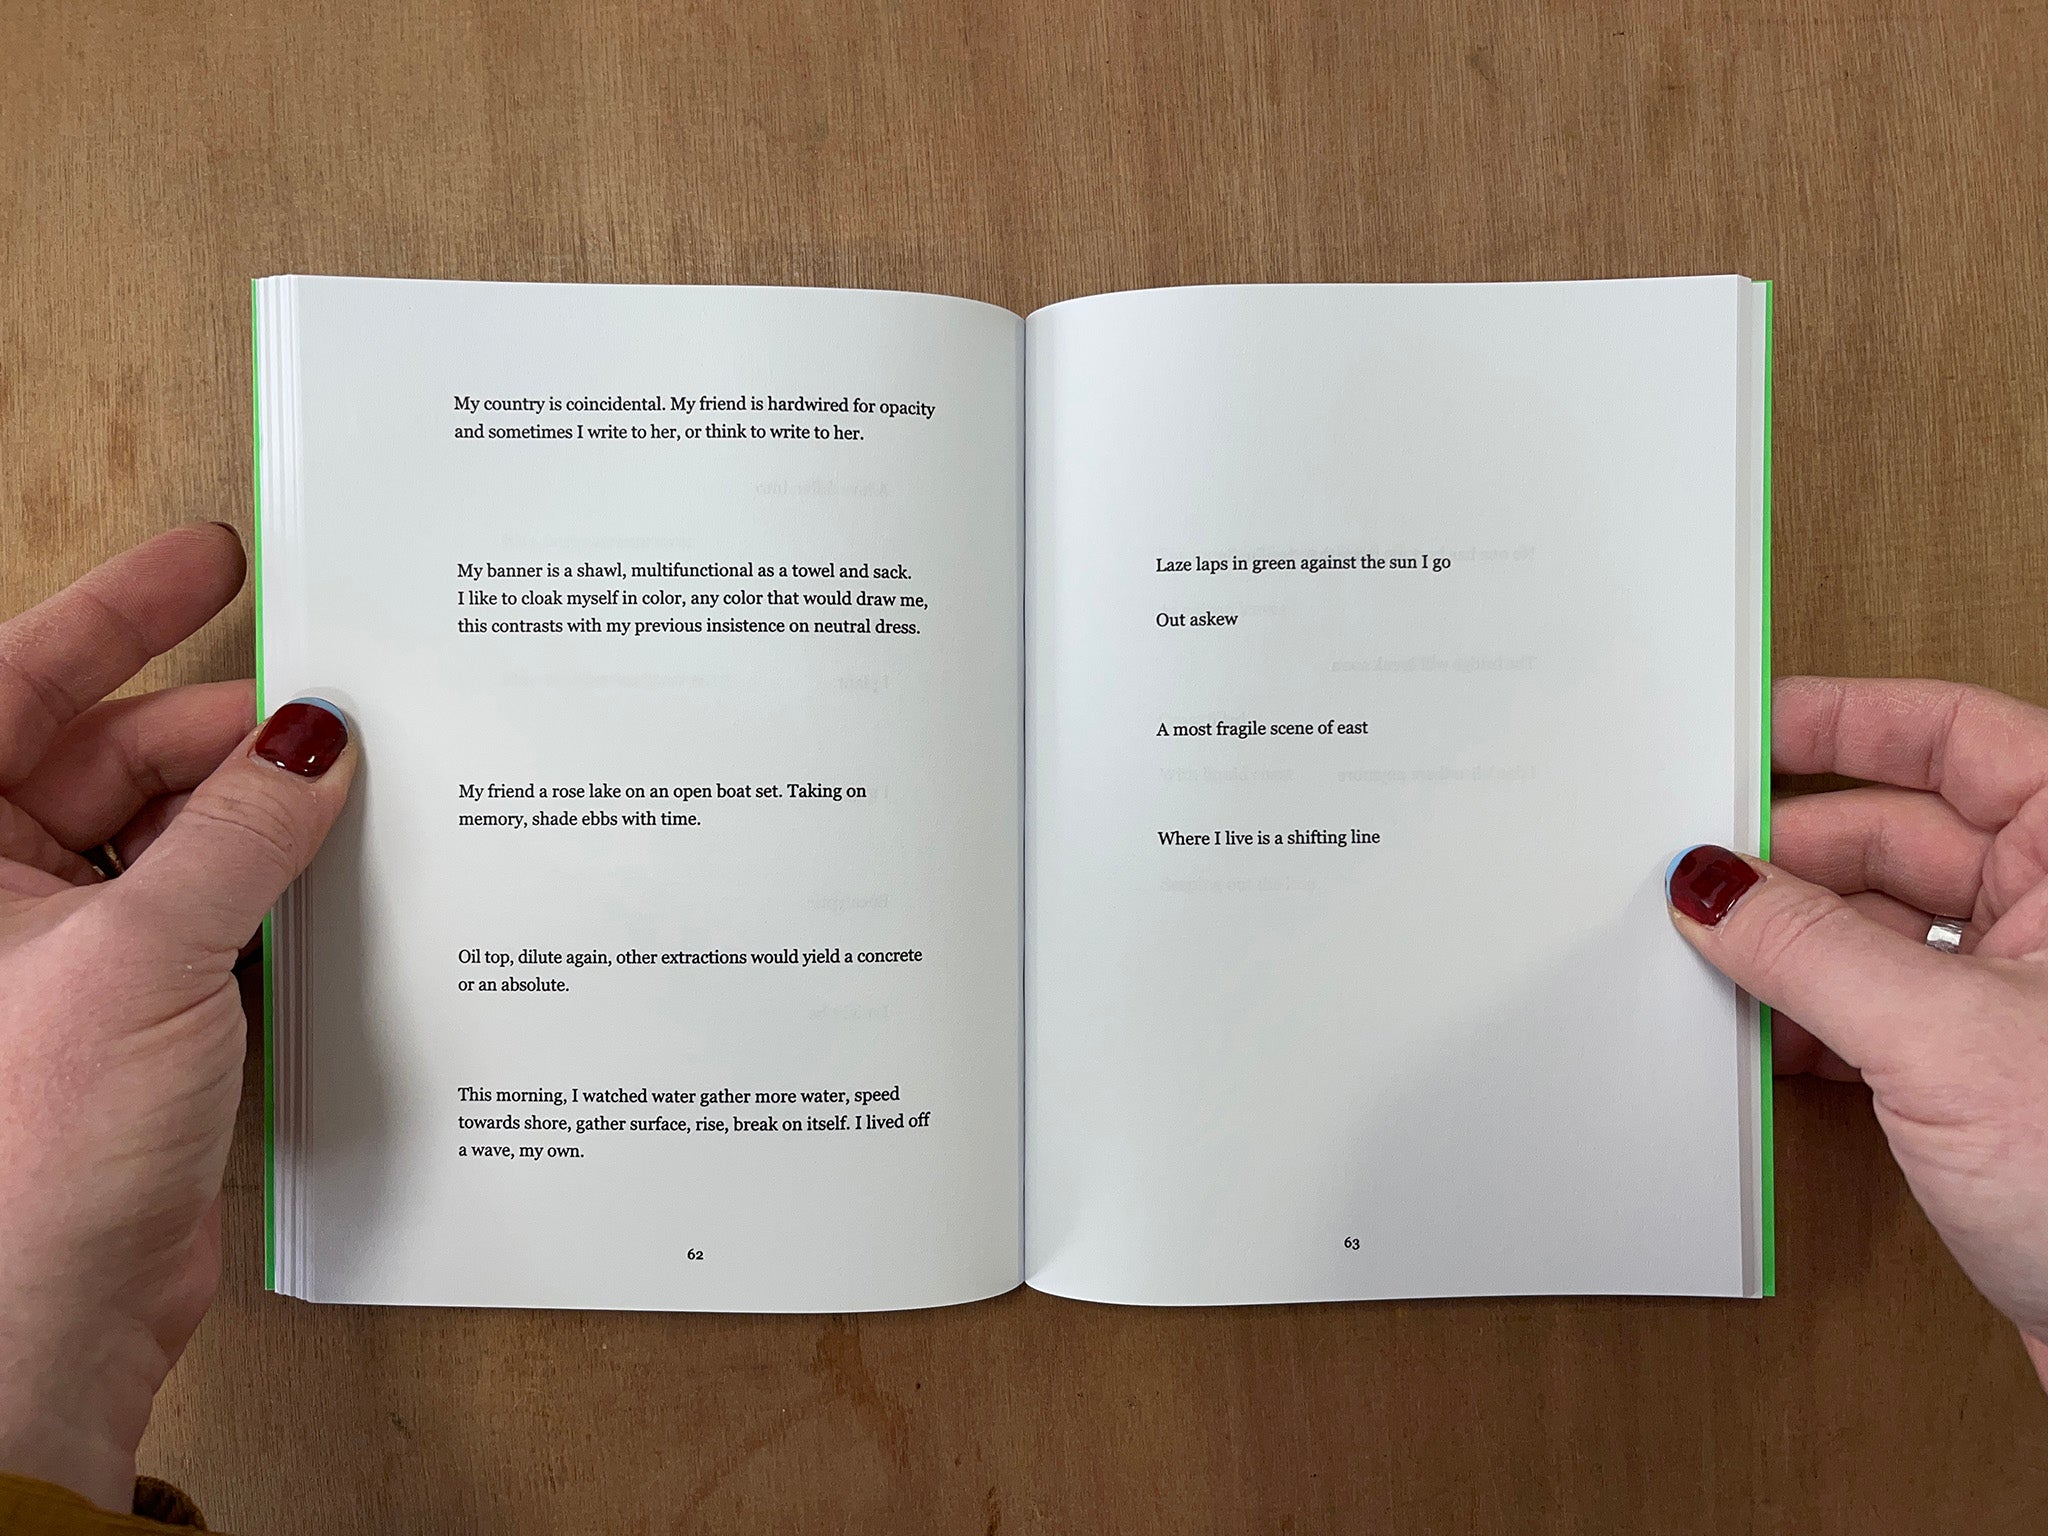 My country is coincidental. My friend is hardwired for opacity
and sometimes I write to her, or think to write to her.
My banner is a shawl, multifunctional as a towel and sack.
I like to cloak myself in color, any color that would draw me,
this contrasts with my previous insistence on neutral dress.
My friend a rose lake on an open boat set. Taking on
memory, shade ebbs with time.
Oil top, dilute again, other extractions would yield a concrete
or an absolute.
This morning, I watched water gather more water, speed
towards shore, gather surface, rise, break on itself. I lived off
a wave, my own.
62
Laze laps in green against the sun I go
Out askew
A most fragile scene of east
Where I live is a shifting line
63